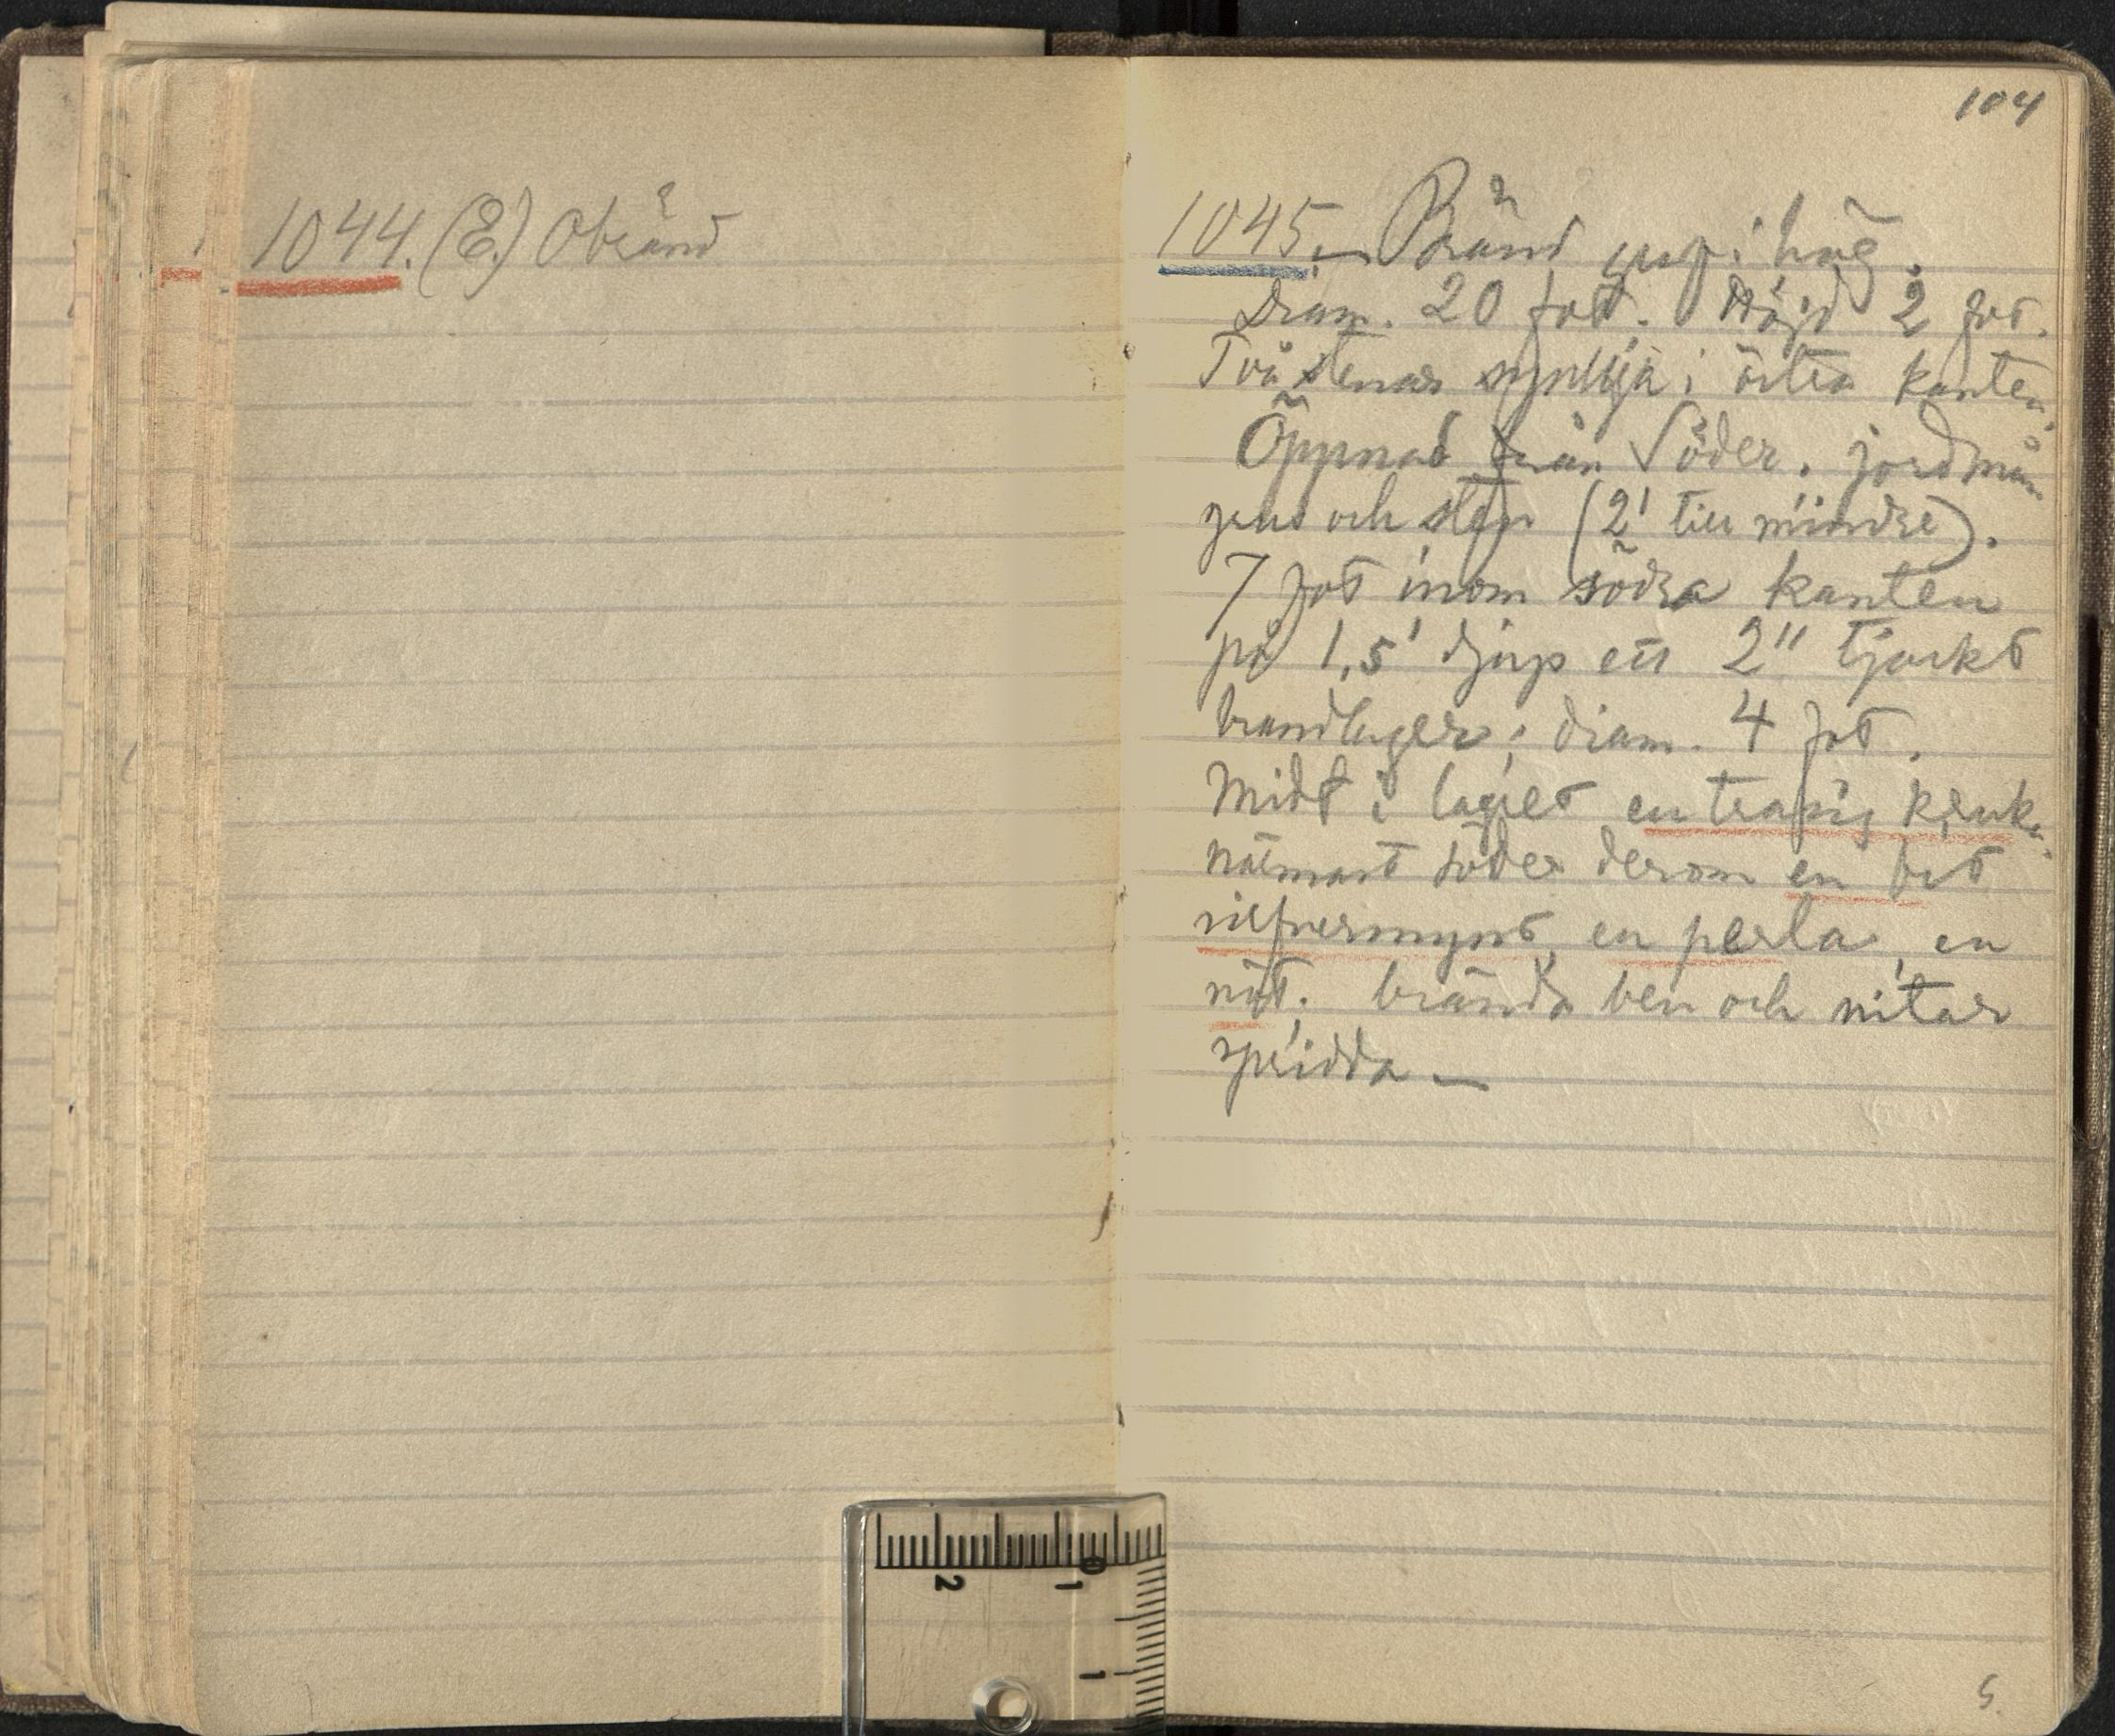 1044. (E.) Obränd
104
1045. — Bränd graf i hög.
Diam. 20 fot. Höjd 2 fot.
Två stenar synliga i östra kanten.
Öppnad från Söder. jordmån
grus och sten (2' till mindre).
7 fot inom södra kanten
på 1,5' djup ett 2" tjockt
brandlager; diam. 4 fot.
Midt i lagret en trasig kruka.
närmast söder derom en bit
silfvermynt, en perla, en
nöt. brända ben och nitar
spridda —
2 1 0
1
5.